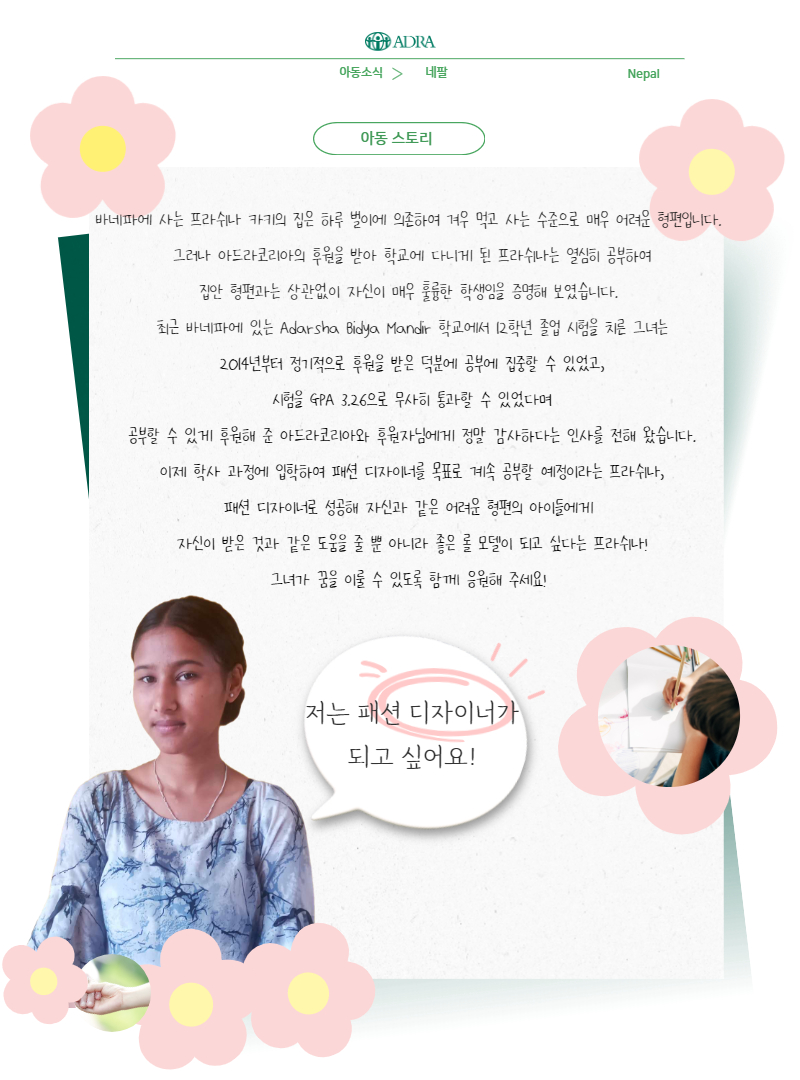 ADRA
아동소식 > 네팔 Nepal
아동 스토리
바네파에 사는 프라쉬나 카키의 집은 하루 벌이에 의존하여 겨우 먹고 사는 수준으로 매우 어려운 형편입니다.
그러나 아드라코리아의 후원을 받아 학교에 다니게 된 프라쉬나는 열심히 공부하여
집안 형편과는 상관없이 자신이 매우 훌륭한 학생임을 증명해 보였습니다.
최근 바네파에 있는 Adarsha Bidya Mandir 학교에서 12학년 졸업 시험을 치른 그녀는
2014년부터 정기적으로 후원을 받은 덕분에 공부에 집중할 수 있었고,
시험을 GPA 3.26으로 무사히 통과할 수 있었다며
공부할 수 있게 후원해 준 아드라코리아와 후원자님에게 정말 감사하다는 인사를 전해 왔습니다.
이제 학사 과정에 입학하여 패션 디자이너를 목표로 계속 공부할 예정이라는 프라쉬나,
패션 디자이너로 성공해 자신과 같은 어려운 형편의 아이들에게
자신이 받은 것과 같은 도움을 줄 뿐 아니라 좋은 롤 모델이 되고 싶다는 프라쉬나!
그녀가 꿈을 이룰 수 있도록 함께 응원해 주세요!
저는 패션 디자이너가
되고 싶어요!